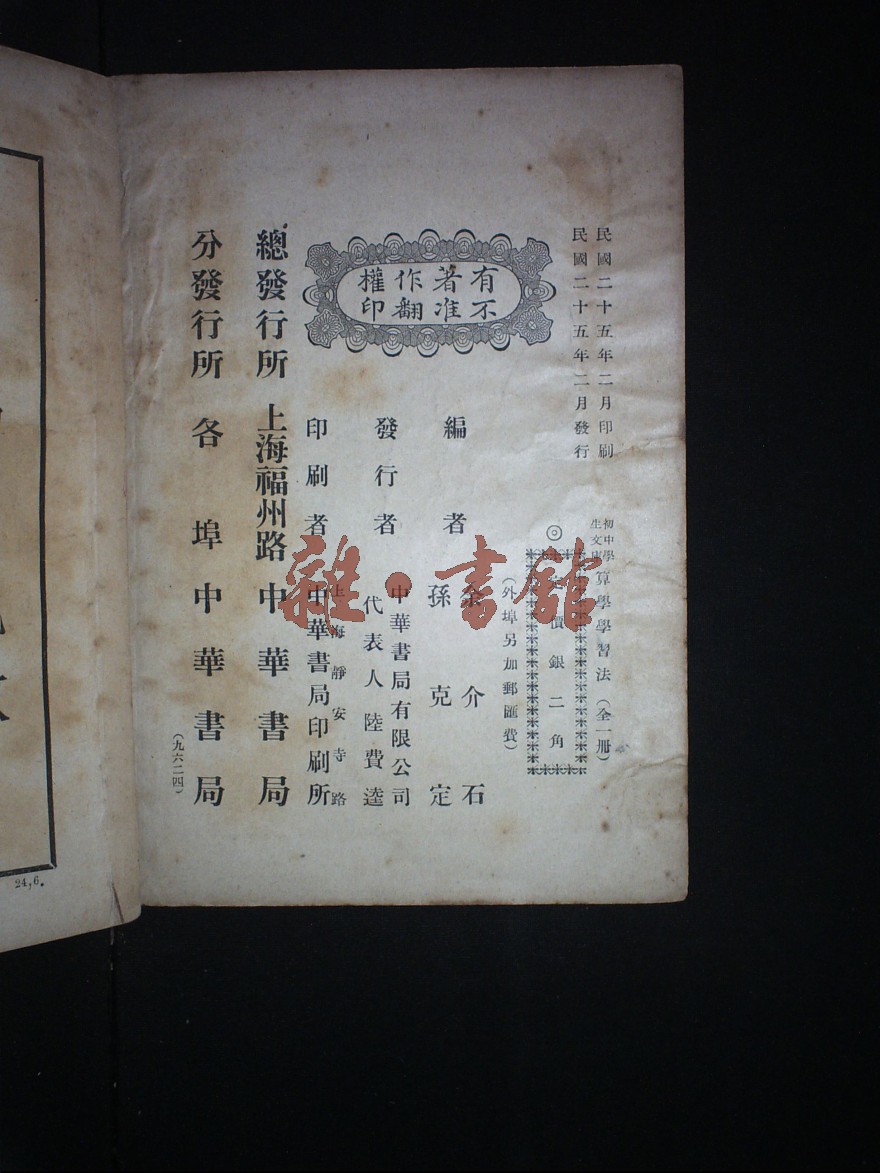 民國二十五年二月印刷
民國二十五年二月發行
初中學
生文庫
算學學習法（全一冊）
◎定價銀二角
（外埠另加郵匯費）
有著作權
不准翻印
編者
余介石
孫克定
發行者
中華書局有限公司
代表人陸費逵
印刷者
上海靜安寺路
中華書局印刷所
總發行所 上海福州路 中華書局
分發行所 各埠中華書局
（九六二四）
24,6.
雜·書館